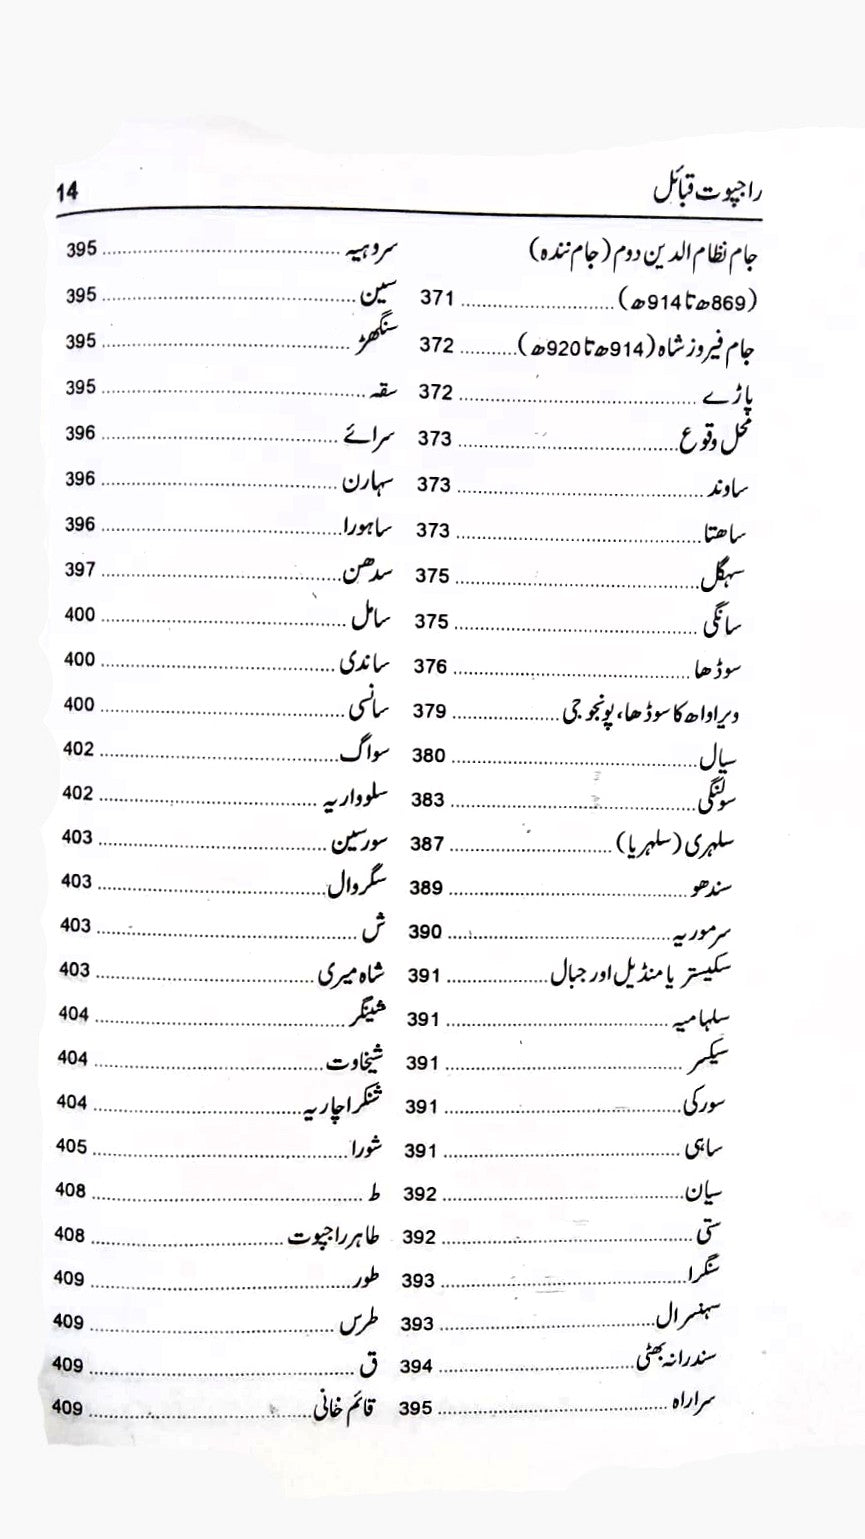 راجپوت قبائل 14
جام نظام الدین دوم (جام نندہ)
(869ھ تا 914ھ) ............ 371
جام فیروز شاہ (914ھ تا 920ھ) ............ 372
پاڑے ............ 372
محل وقوع ............ 373
ساوند ............ 373
ساھتا ............ 373
سہگل ............ 375
سانگی ............ 375
سوڈھا ............ 376
ویراواھ کا سوڈھا، پونجوجی ............ 379
سیال ............ 380
سولنگی ............ 383
سلہری (سلہریا) ............ 387
سندھو ............ 389
سرموریہ ............ 390
سکیستر یا منڈیل اور جبال ............ 391
سلہامیہ ............ 391
سیکسر ............ 391
سورکی ............ 391
ساہی ............ 391
سیان ............ 392
ستی ............ 392
سنگرا ............ 393
سہنسرال ............ 393
سندرانہ بھٹی ............ 394
سراراہ ............ 395
سروہیہ ............ 395
سین ............ 395
سنگھڑ ............ 395
سقہ ............ 395
سرائے ............ 396
سہارن ............ 396
ساہورا ............ 396
سدھن ............ 397
سامل ............ 400
ساندی ............ 400
سانسی ............ 400
سواگ ............ 402
سلوواریہ ............ 402
سورسین ............ 403
سگروال ............ 403
ش ............ 403
شاہ میری ............ 403
شینگر ............ 404
شیخاوت ............ 404
شنکراچاریہ ............ 404
شورا ............ 405
ط ............ 408
طاہر راجپوت ............ 408
طور ............ 409
طرس ............ 409
ق ............ 409
قائم خانی ............ 409